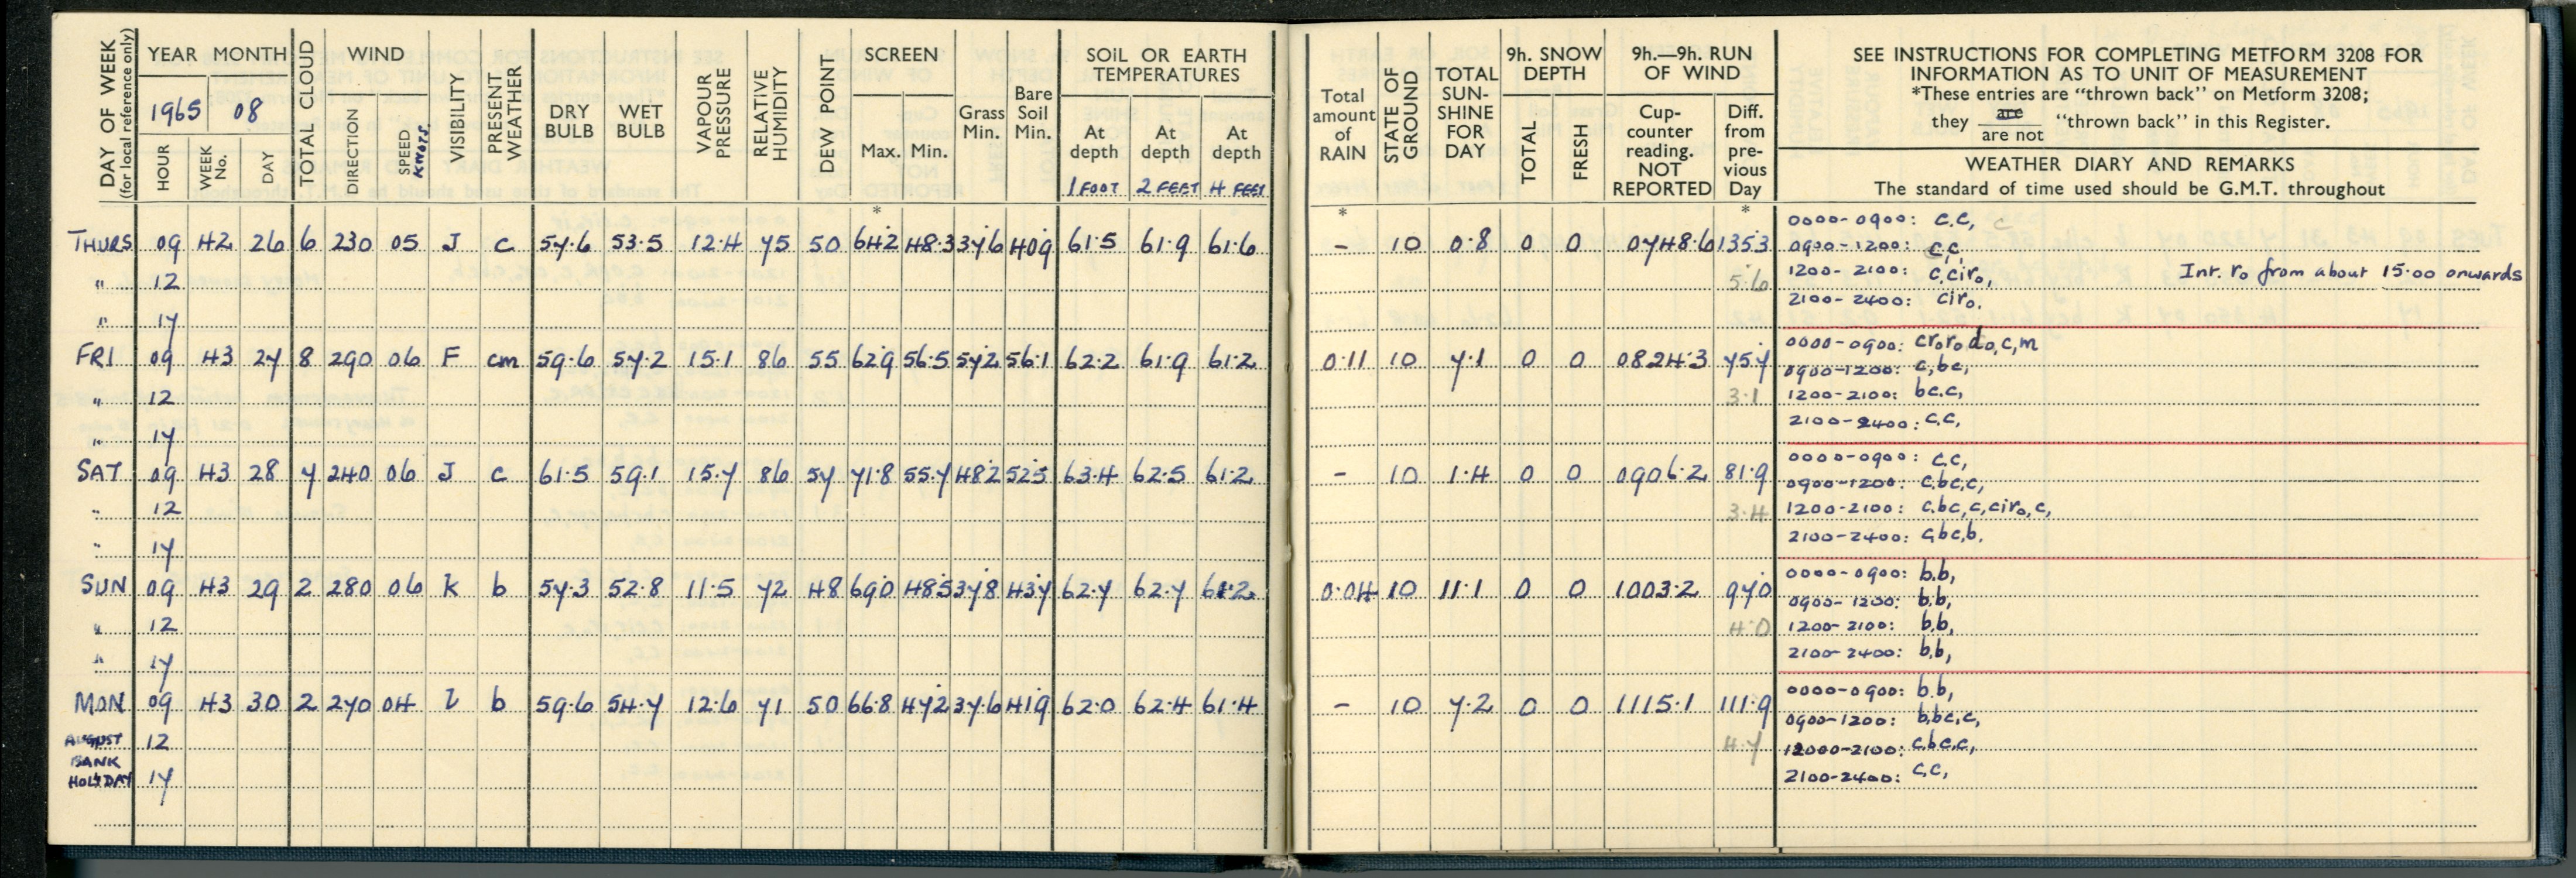 DAY OF WEEK
(for local reference only)
YEAR MONTH
1965 08
HOUR
WEEK No.
DAY
TOTAL CLOUD
WIND
DIRECTION
SPEED KNOTS.
VISIBILITY
PRESENT WEATHER
DRY BULB
WET BULB
VAPOUR PRESSURE
RELATIVE HUMIDITY
DEW POINT
SCREEN
Max. Min.
*
Grass Min.
Bare Soil Min.
SOIL OR EARTH TEMPERATURES
At depth At depth At depth
1 FOOT 2 FEET 4 FEET
Total amount of RAIN
*
STATE OF GROUND
TOTAL SUN-SHINE FOR DAY
9h. SNOW DEPTH
TOTAL FRESH
9h.—9h. RUN OF WIND
Cup-counter reading. NOT REPORTED
Diff. from pre-vious Day
*
SEE INSTRUCTIONS FOR COMPLETING METFORM 3208 FOR
INFORMATION AS TO UNIT OF MEASUREMENT
*These entries are "thrown back" on Metform 3208;
they are / are not "thrown back" in this Register.
WEATHER DIARY AND REMARKS
The standard of time used should be G.M.T. throughout
THURS 09 42 26 6 230 05 J c 57.6 53.5 12.4 75 50 64.2 48.3 37.6 40.9 61.5 61.9 61.6 – 10 0.8 0 0 0748.6 135.3
0000-0900: c.c, c
0900-1200: c,c,
" 12 5.6 1200-2100: c,cir₀, Int. r₀ from about 15.00 onwards
2100-2400: cir₀.
" 17
FRI 09 43 27 8 290 06 F cm 59.6 57.2 15.1 86 55 62.9 56.5 57.2 56.1 62.2 61.9 61.2 0.11 10 7.1 0 0 0824.3 75.7
0000-0900: cr₀r₀d₀,c,m
0900-1200: c,bc,
" 12 3.1 1200-2100: bc.c,
2100-2400: c.c,
" 17
SAT 09 43 28 7 240 06 J c 61.5 59.1 15.7 86 57 71.8 55.7 48.2 52.5 63.4 62.5 61.2 – 10 1.4 0 0 0906.2 81.9
0000-0900: c.c,
0900-1200: c.bc,c,
" 12 3.4 1200-2100: c.bc,c,cir₀,c,
2100-2400: c,bc,b.
" 17
SUN 09 43 29 2 280 06 k b 57.3 52.8 11.5 72 48 69.0 48.5 37.8 43.7 62.7 62.7 61.2 0.04 10 11.1 0 0 1003.2 97.0
0000-0900: b.b,
0900-1200: b.b,
" 12 4.0 1200-2100: b.b,
2100-2400: b.b,
" 17
MON 09 43 30 2 270 04 l b 59.6 54.7 12.6 71 50 66.8 47.2 37.6 41.9 62.0 62.4 61.4 – 10 7.2 0 0 1115.1 111.9
0000-0900: b.b,
0900-1200: b,bc,c,
AUGUST 12 4.7 12000-2100: c.bc.c,
BANK
HOLIDAY 17 2100-2400: c.c,